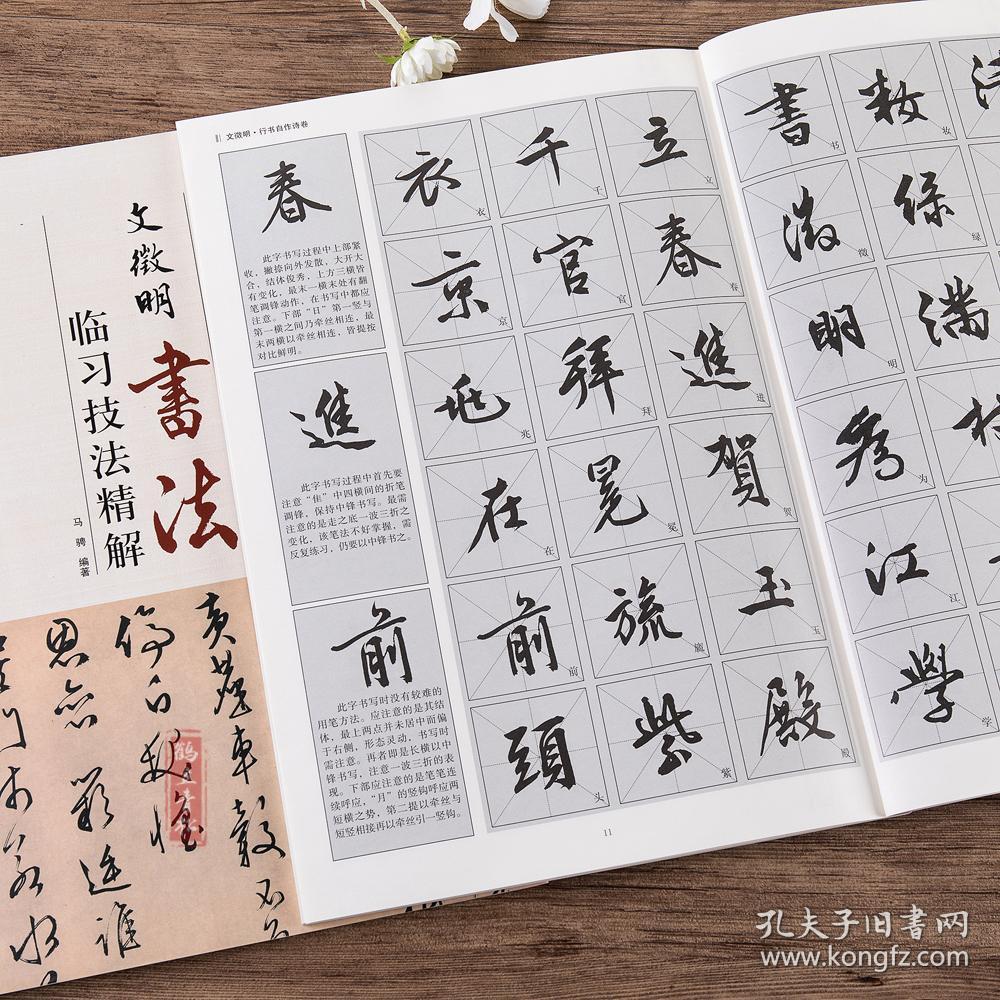 文徵明
書法
临习技法精解
马骋 编著
文徵明·行书自作诗卷
春
此字书写过程中上部紧
收，撇捺向外发散，大开大
合，结体俊秀，上方三横皆
有变化，最末一横末处有翻
笔调锋动作，在书写中都应
注意。下部“日”第一竖与
第一横之间乃牵丝相连，最
末两横以牵丝相连，皆提按
对比鲜明。
進
此字书写过程中首先要
注意“隹”中四横间的折笔
调锋，保持中锋书写。最需
注意的是走之底一波三折之
变化，该笔法不好掌握，需
反复练习，仍要以中锋书之。
前
此字书写时没有较难的
用笔方法。应注意的是其结
体，最上两点并未居中而偏
于右侧，形态灵动，书写时
需注意。再者即是长横以中
锋书写，注意一波三折的表
现。下部应注意的是笔笔连
续呼应，“月”的竖钩呼应两
短横之势，第二提以牵丝与
短竖相接再以牵丝引一竖钩。
立 立
春 春
進 进
賀 贺
玉 玉
殿 殿
千 千
官 官
拜 拜
冕 冕
旒 旒
紫 紫
衣 衣
京 京
兆 兆
在 在
前 前
頭 头
11
妝 妆
綠 绿
滿
書 书
徵 徵
明 明
為 为
江 江
學 学
孔夫子旧书网
www.kongfz.com